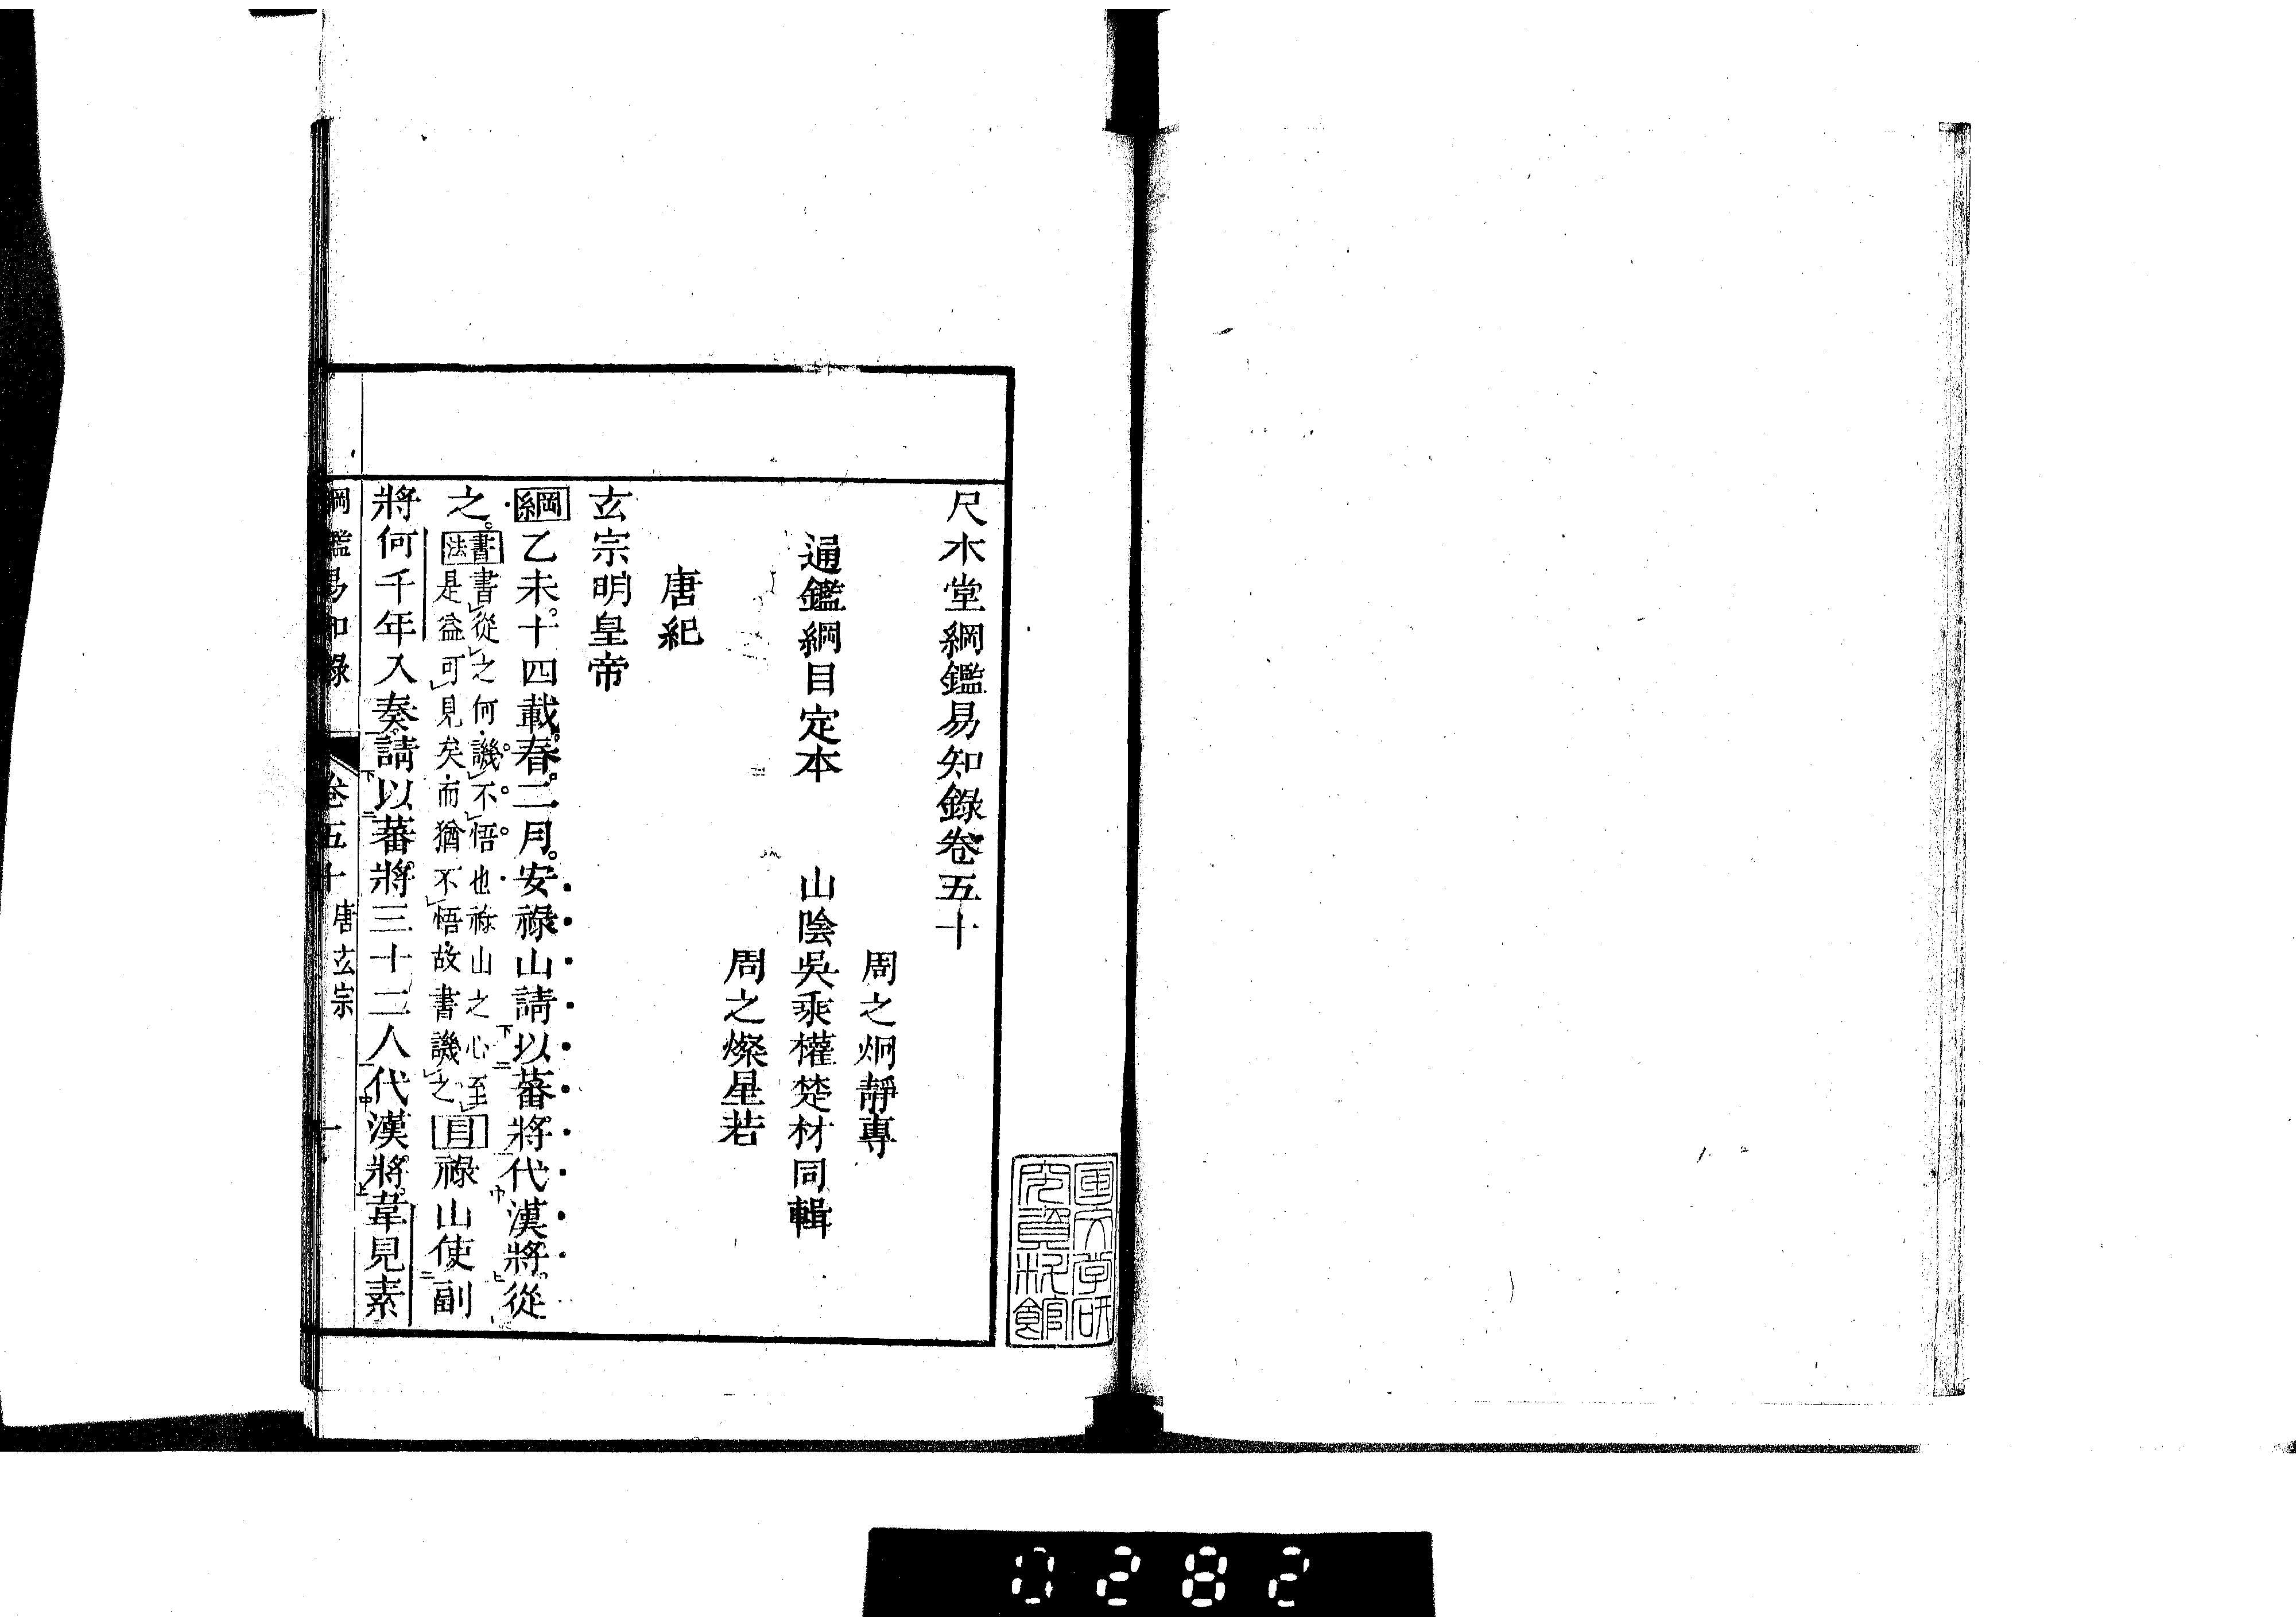 尺木堂綱鑑易知錄卷五十
周之炯靜專
通鑑綱目定本　山陰吳乘權楚材同輯
周之燦星若
唐紀
玄宗明皇帝
綱乙未。十四載。春。二月。安祿山請以蕃將代漢將。從
之。書法書從之何譏不悟也祿山之心至
是益可見矣而猶不悟故書譏之目祿山使副
將何千年入奏請以蕃將三十二人代漢將。韋見素
綱鑑易知錄　卷五十　唐玄宗　一
國文学研
究資料館
0282